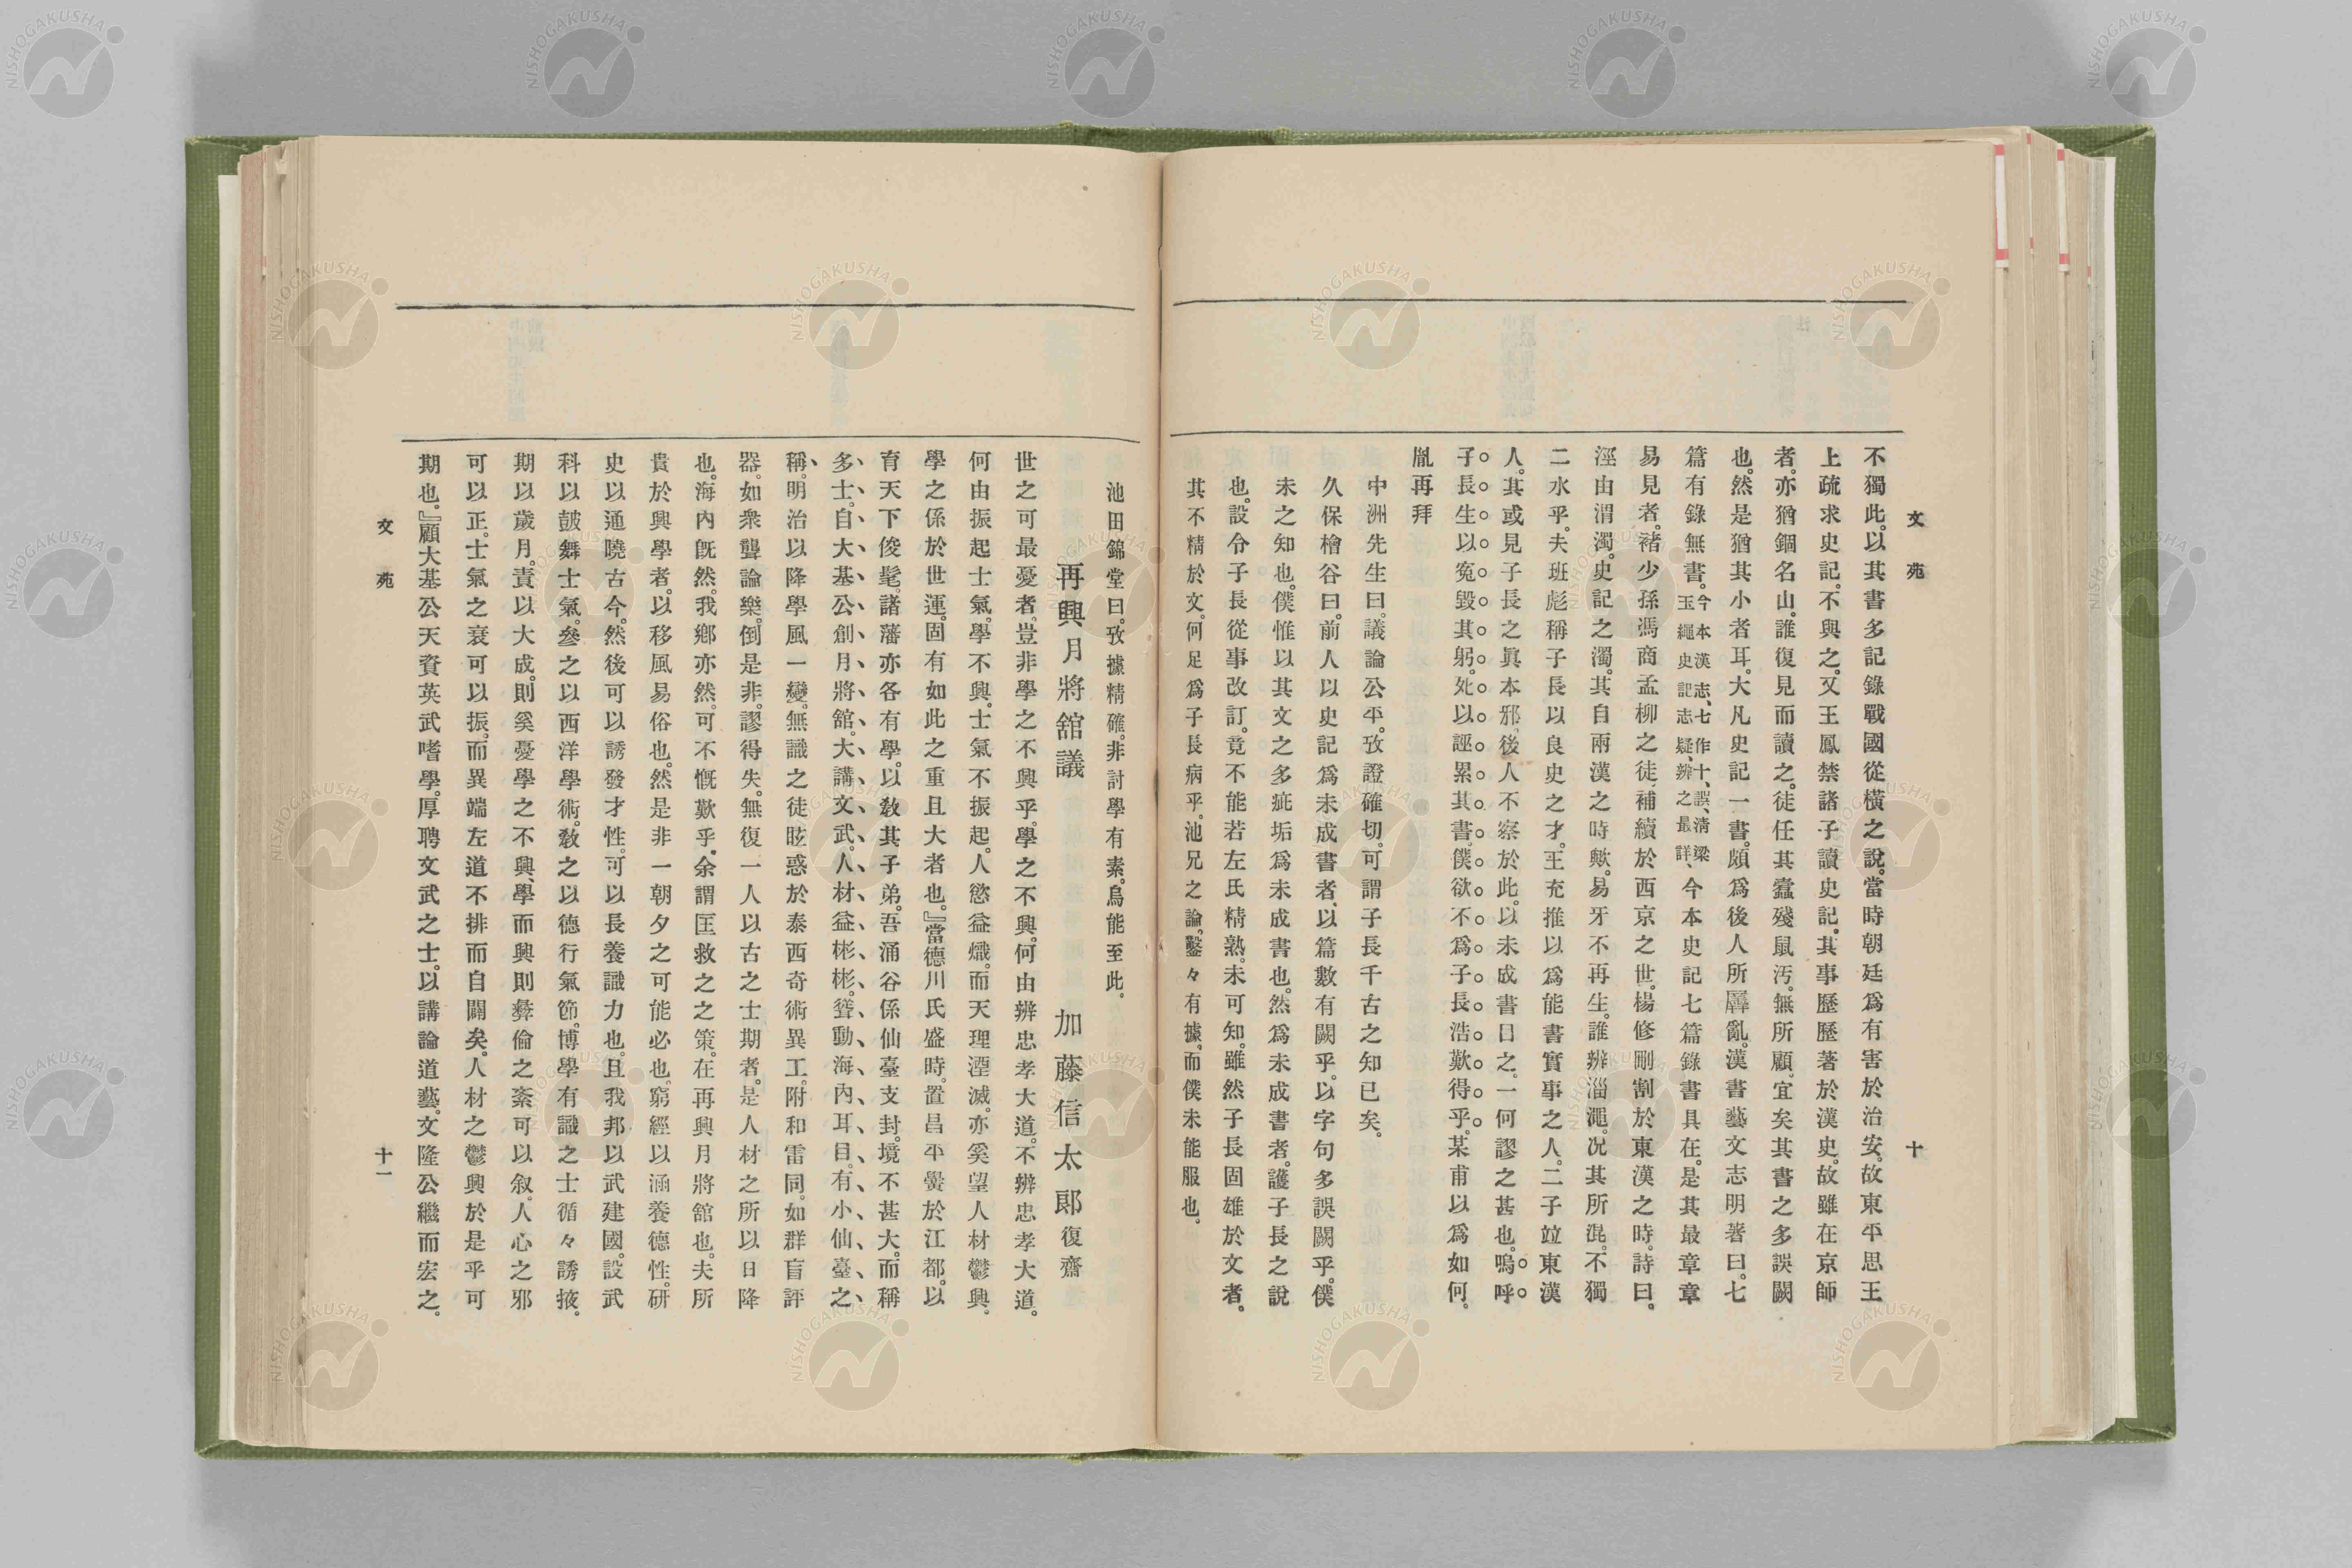 文苑
十
不獨此。以其書多記錄戰國從橫之說。當時朝廷爲有害於治安。故東平思王
上疏求史記。不與之。又王鳳禁諸子讀史記。其事歷歷著於漢史。故雖在京師
者。亦猶錮名山。誰復見而讀之。徒任其蠹殘鼠汚。無所顧。宜矣其書之多誤闕
也。然是猶其小者耳。大凡史記一書。頗爲後人所羼亂。漢書藝文志明著曰。七
篇有錄無書。今本漢志、七作十、誤、淸梁玉繩史記志疑、辨之最詳、今本史記七篇錄書具在。是其最章章
易見者。褚少孫馮商孟柳之徒、補續於西京之世。楊修刪割於東漢之時。詩曰。
涇由渭濁。史記之濁。其自兩漢之時歟。易牙不再生。誰辨淄澠。况其所混。不獨
二水乎。夫班彪稱子長以良史之才。王充推以爲能書實事之人。二子竝東漢
人。其或見子長之眞本邪、後人不察於此。以未成書目之。一何謬之甚也。嗚呼
子長生以寃毀其躬。死以誣累其書。僕欲不爲子長浩歎得乎。某甫以爲如何。
胤再拜
中洲先生曰。議論公平。攷證確切。可謂子長千古之知已矣。
久保檜谷曰。前人以史記爲未成書者、以篇數有闕乎。以字句多誤闕乎。僕
未之知也。僕惟以其文之多疵垢爲未成書也。然爲未成書者。護子長之說
也。設令子長從事改訂。竟不能若左氏精熟。未可知。雖然子長固雄於文者。
其不精於文。何足爲子長病乎。池兄之論。鑿々有據。而僕未能服也。
池田錦堂曰。攷據精確。非討學有素。烏能至此。
再興月將舘議
加藤信太郎復齋
世之可最憂者。豈非學之不興乎。學之不興。何由辨忠孝大道。不辨忠孝大道。
何由振起士氣。學不興。士氣不振起。人慾益熾。而天理湮滅。亦奚望人材鬱興。
學之係於世運。固有如此之重且大者也。』當德川氏盛時。置昌平黌於江都。以
育天下俊髦。諸藩亦各有學。以敎其子弟。吾涌谷係仙臺支封。境不甚大。而稱
多士。自大基公創月將舘。大講文武。人材益彬彬。聳動海內耳目。有小仙臺之
稱。明治以降學風一變。無識之徒眩惑於泰西奇術異工。附和雷同。如群盲評
器。如衆聾論樂。倒是非。謬得失。無復一人以古之士期者。是人材之所以日降
也。海內旣然。我鄕亦然。可不慨歎乎。余謂匡救之之策。在再興月將舘也。夫所
貴於興學者。以移風易俗也。然是非一朝夕之可能必也。窮經以涵養德性。硏
史以通曉古今。然後可以誘發才性。可以長養識力也。且我邦以武建國。設武
科以皷舞士氣。叅之以西洋學術。敎之以德行氣節。博學有識之士循々誘掖。
期以歲月。責以大成。則奚憂學之不興、學而興則彜倫之紊可以叙。人心之邪
可以正。士氣之衰可以振。而異端左道不排而自闢矣。人材之鬱興於是乎可
期也。』顧大基公天資英武嗜學。厚聘文武之士。以講論道藝。文隆公繼而宏之。
文苑
十一